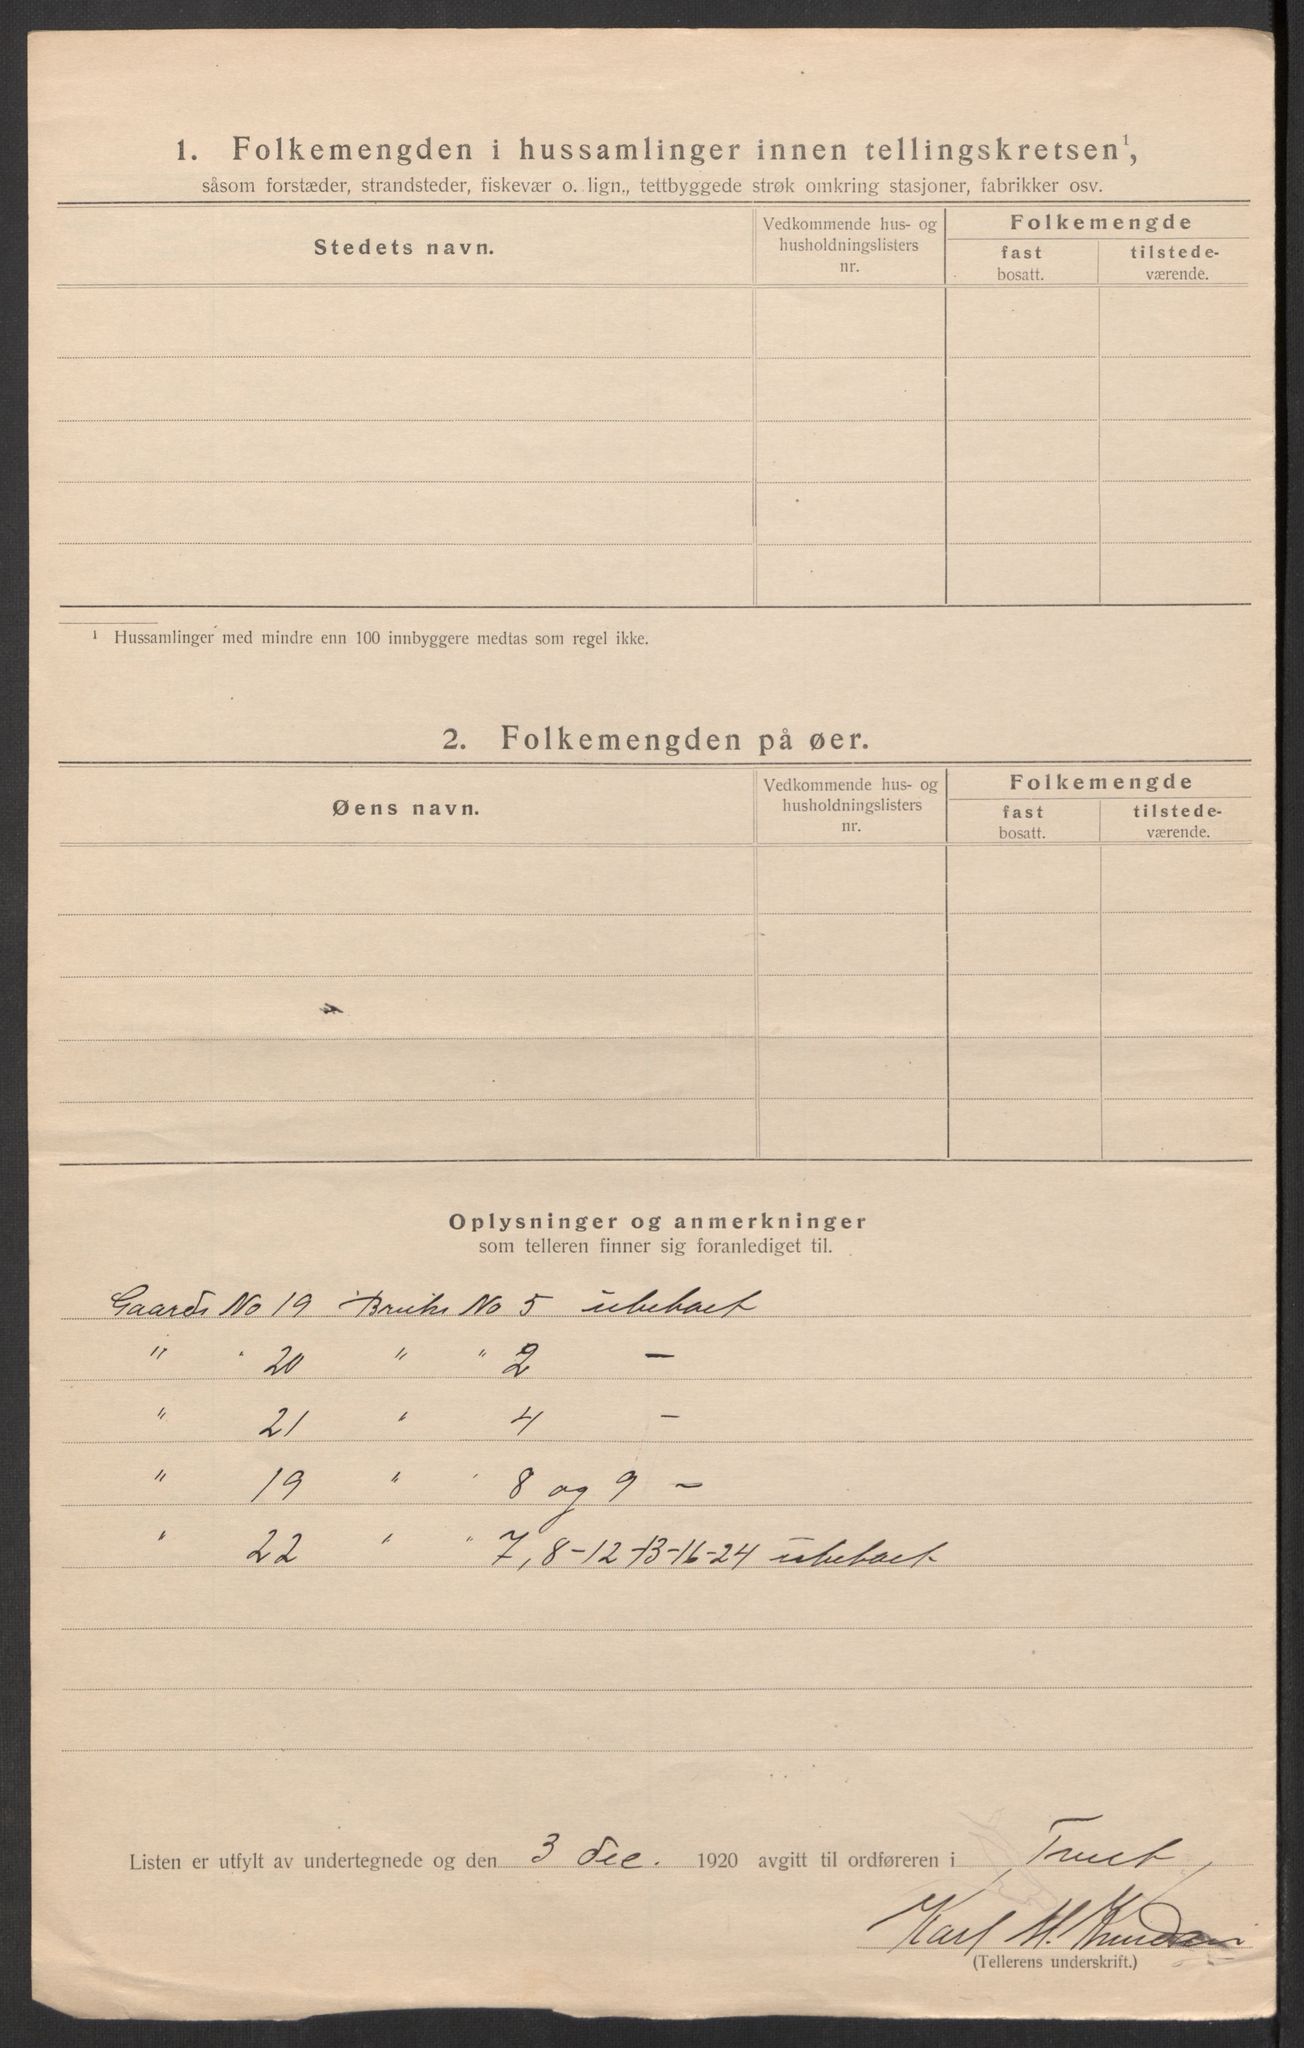 1. Folkemengden i hussamlinger innen tellingskretsen¹,
såsom forstæder, strandsteder, fiskevær o. lign., tettbyggede strøk omkring stasjoner, fabrikker osv.
Stedets navn.
Vedkommende hus- og
husholdningslisters
nr.
Folkemengde
fast
bosatt.
tilstede-
værende.
¹ Hussamlinger med mindre enn 100 innbyggere medtas som regel ikke.
2. Folkemengden på øer.
Øens navn.
Vedkommende hus- og
husholdningslisters
nr.
Folkemengde
fast
bosatt.
tilstede-
værende.
Oplysninger og anmerkninger
som telleren finner sig foranlediget til.
Gaards No 19 Bruks No 5 ubeboet
" " 20 " " 2 –
" 21 " 4 –
" 19 " " 8 og 9 –
" 22 " " 7, 8-12-13-16-24 ubeboet
Listen er utfylt av undertegnede og den 3 Dec. 1920 avgitt til ordføreren i
Karl M. Knudsen
(Tellerens underskrift.)